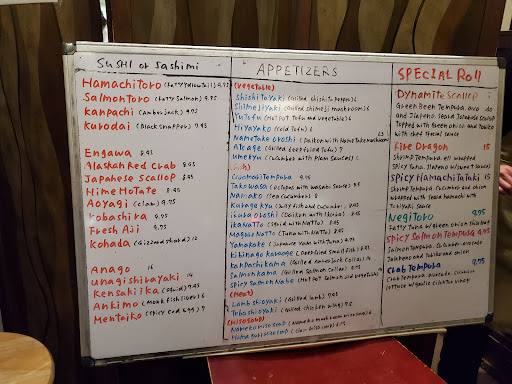 SUSHI or Sashimi
Hamachi Toro (Fatty Yellow Tail) 9.95
Salmon Toro (Fatty Salmon) 9.95
Kanpachi (Amber Jack) 9.95
Kurodai (Black Snapper) 7.95
Engawa 8.95
Alaskan Red Crab 9.95
Japanese Scallop 8.95
Hime Hotate 8.95
Aoyagi (clam) 9.95
Kobashira 9.95
Fresh Aji 9.95
Kohada (Gizzard Shad)
Anago 16
Unagi shirayaki 14
Kensaki ika (Squid) 7.95
Ankimo (Monk Fish Liver) 6
Mentaiko (Spicy Cod Egg) 7
APPETIZERS
(vegetable)
Shishito Yaki (Grilled Shishito Pepper) 6
Shimeji Yaki (Grilled Shimeji mushroom) 6
Yutofu (Hot Pot Tofu and vegetable)
Hiyayako (Cold Tofu) 6
Nametake oroshi (Daikon with Name Take mushroom)
Atsage (Grilled Deep Fried Tofu) 7
Umekyu (Cucumber with Plum Sauce)
Takowasa (octopus with wasabi Sauce) 8.5
Namako (Sea Cucumber) 8
Kurage kyu (Jelly fish and Cucumber)
Ikura oroshi (Daikon with Ikura)
Ika Natto (Squid with Natto)
Maguro Natto (Tuna with Natto)
Yamakake (Japanese Yam with Tuna)
Kibinago Karaage (Deep Fried Small Fish)
Kanpachi Kama (Grilled Amber Jack Collar)
Salmon Kama (Grilled Salmon Collar)
Spicy Salmon Nabe (Hot Pot Salmon and vegetable)
(meat)
Lamb shioyaki (Grilled Lamb) 9.95
Teba shioyaki (Grilled chicken wing) 7.95
(MISO SOUP)
SPECIAL Roll
Dynamite Scallop
Green Bean Tempura, avo
and Jalapeno, Seared Japanese Scallop
Topped with Green onion and Tobiko
with chef special sauce
Fire Dragon 15
Shrimp Tempura, eel wrapped
Spicy Tuna, Jalapeno
Spicy Hamachi Tataki 15
Shrimp Tempura, Cucumber and onion
wrapped with Seared Hamachi with
Negitoro 9.95
Fatty Tuna w/Green onion
Spicy Salmon Tempura 9.95
Salmon Tempura, Cucumber, avocado
Jalapeno and Tobiko and onion
Crab Tempura 9.95
Crab Tempura, avocado, Cucumber